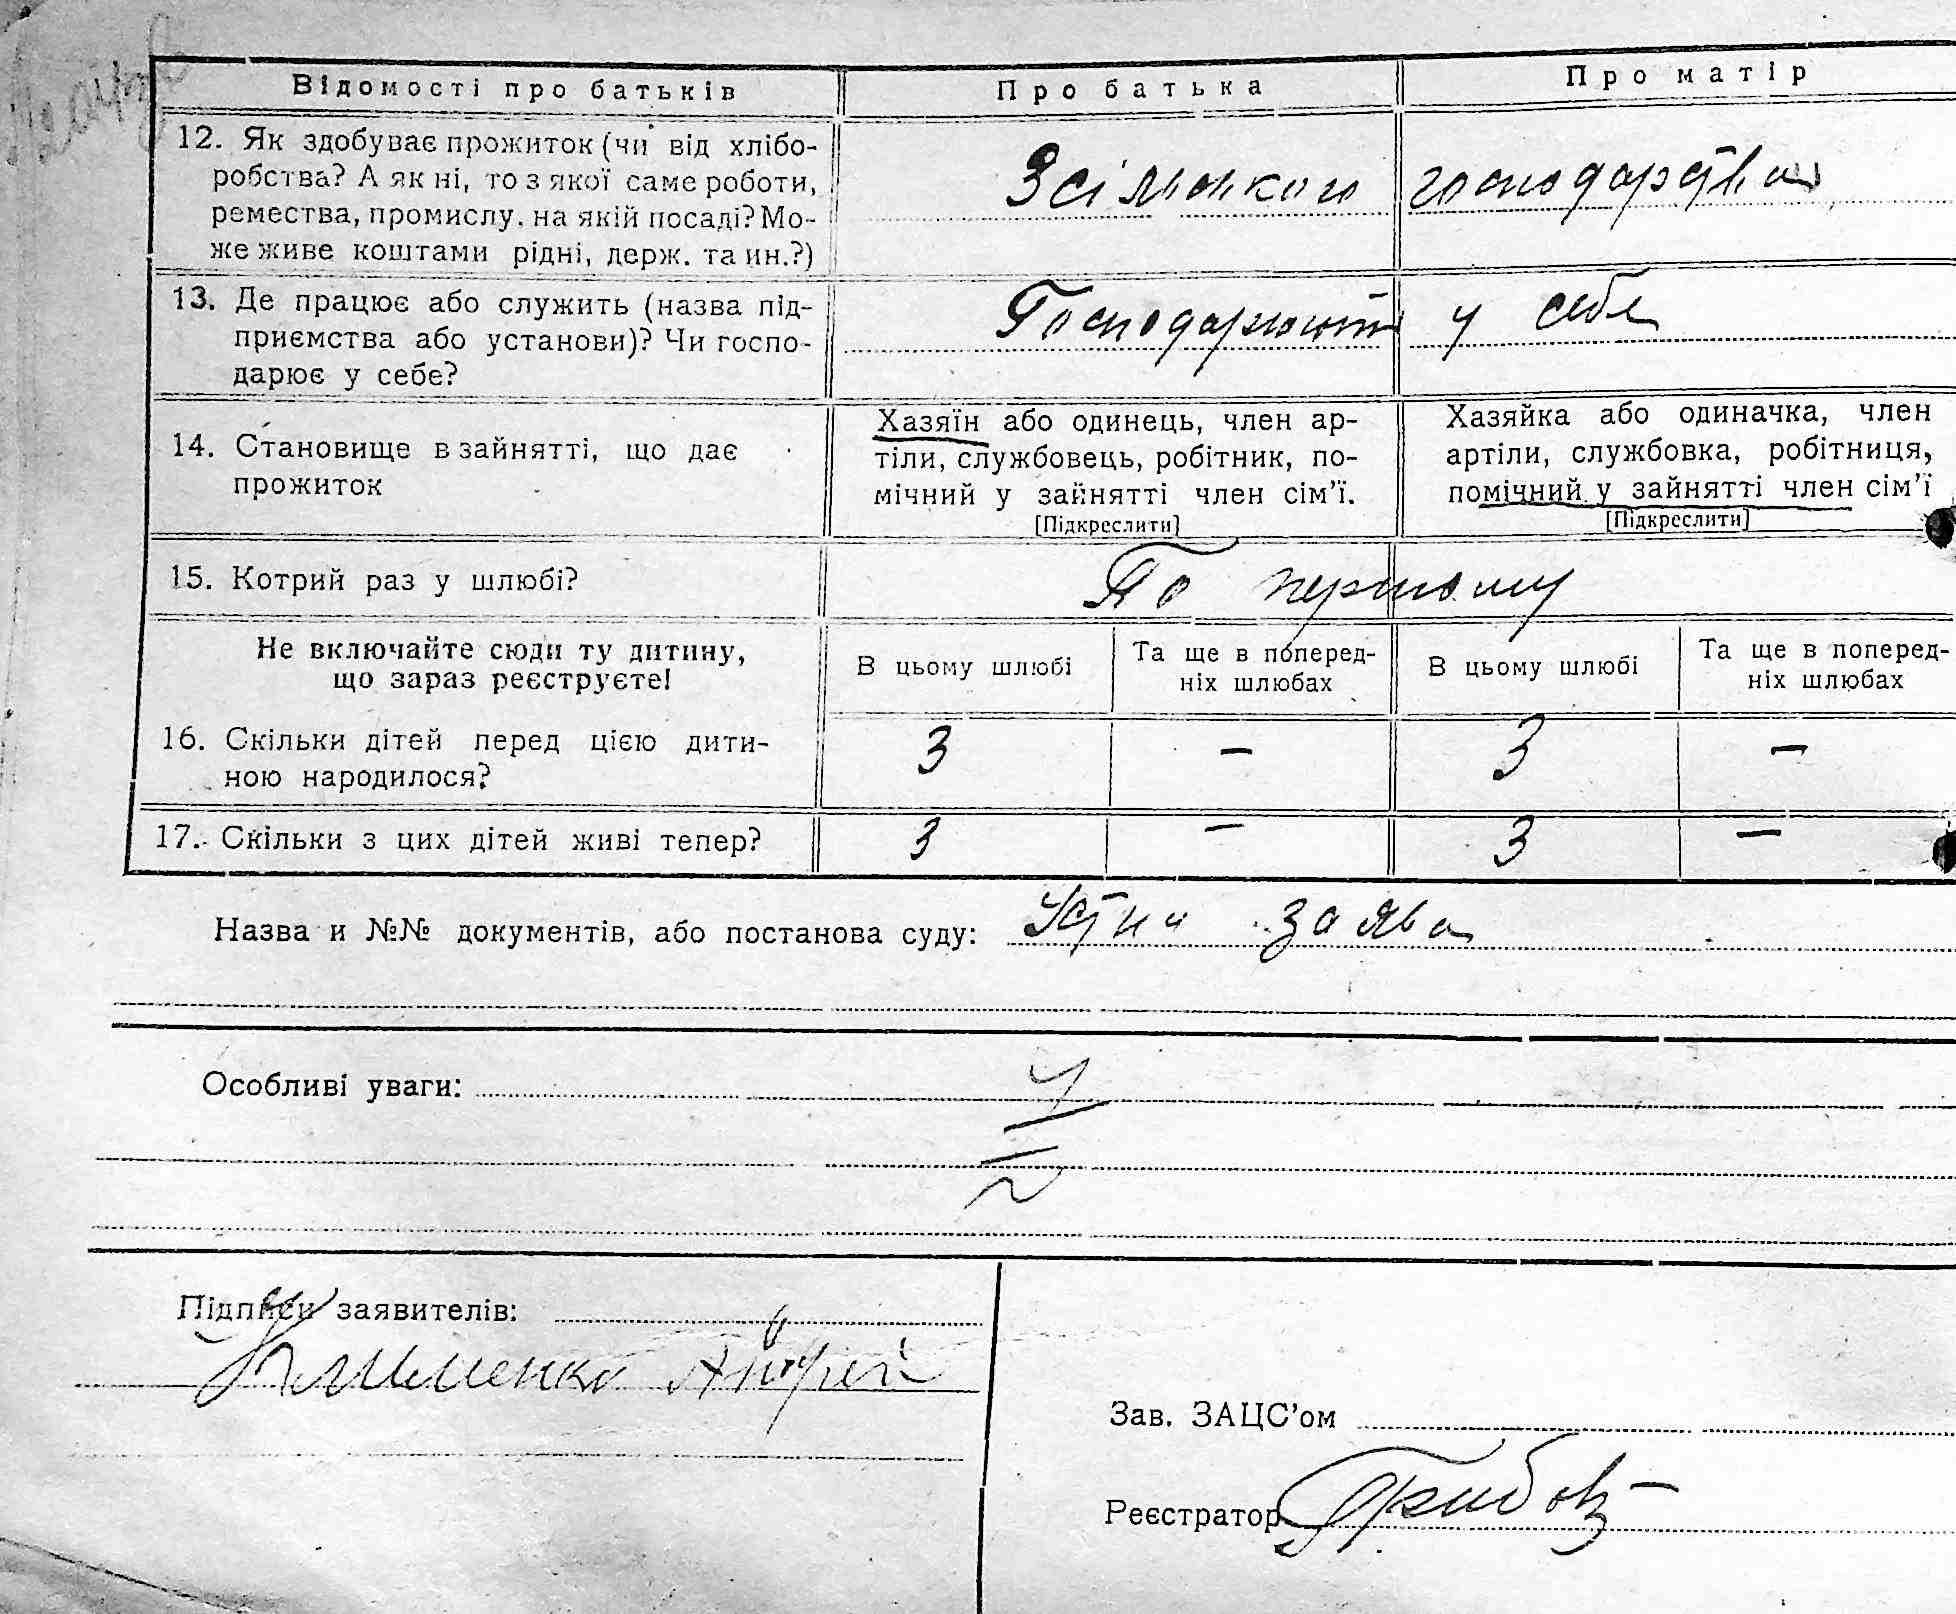 Відомості про батьків Про батька Про матір
12. Як здобуває прожиток (чи від хлібо-
робства? А як ні, то з якої саме роботи,
ремества, промислу, на якій посаді? Мо-
же живе коштами рідні, держ. та ин.?)
З сільського господарства
13. Де працює або служить (назва під-
приємства або установи)? Чи госпо-
дарює у себе?
Господарюють у себе
14. Становище в зайнятті, що дає
прожиток
Хазяїн або одинець, член ар-
тіли, службовець, робітник, по-
мічний у зайнятті член сім'ї.
[Підкреслити]
Хазяйка або одиначка, член
артіли, службовка, робітниця,
помічний у зайнятті член сім'ї
[Підкреслити]
15. Котрий раз у шлюбі? По першому
Не включайте сюди ту дитину,
що зараз реєструєте!
В цьому шлюбі
Та ще в поперед-
ніх шлюбах
В цьому шлюбі
Та ще в поперед-
ніх шлюбах
16. Скільки дітей перед цією дити-
ною народилося?
3 — 3 —
17. Скільки з цих дітей живі тепер? 3 — 3 —
Назва и №№ документів, або постанова суду: Устна заява
Особливі уваги:
Підписи заявителів:
Клименко Андрей
Зав. ЗАЦС'ом
Реєстратор